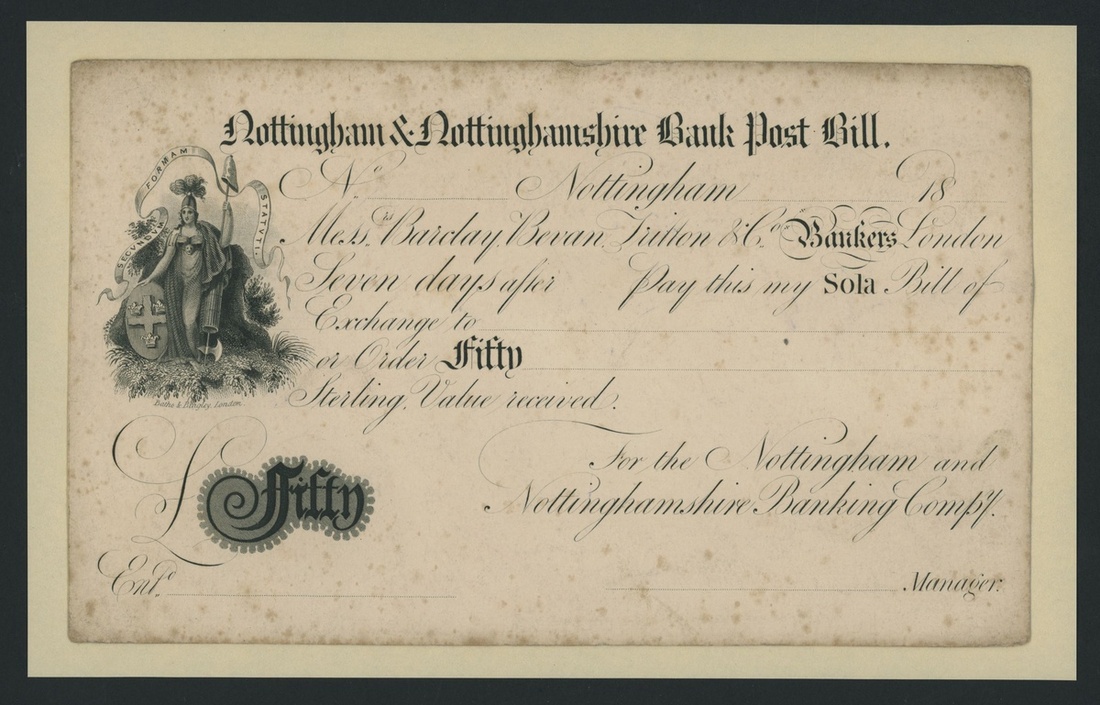 Nottingham & Nottinghamshire Bank Post Bill.
SECVNDAM FORMAM STATVTI.
No Nottingham 18
Messrs. Barclay, Bevan, Tritton & Co. Bankers London
Seven days after Pay this my Sola Bill of
Exchange to
or Order Fifty
Sterling, Value received.
Batho & Bingley, London.
£ Fifty
For the Nottingham and
Nottinghamshire Banking Compy.
Entd.
Manager.